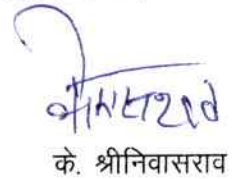 के. श्रीनिवासराव